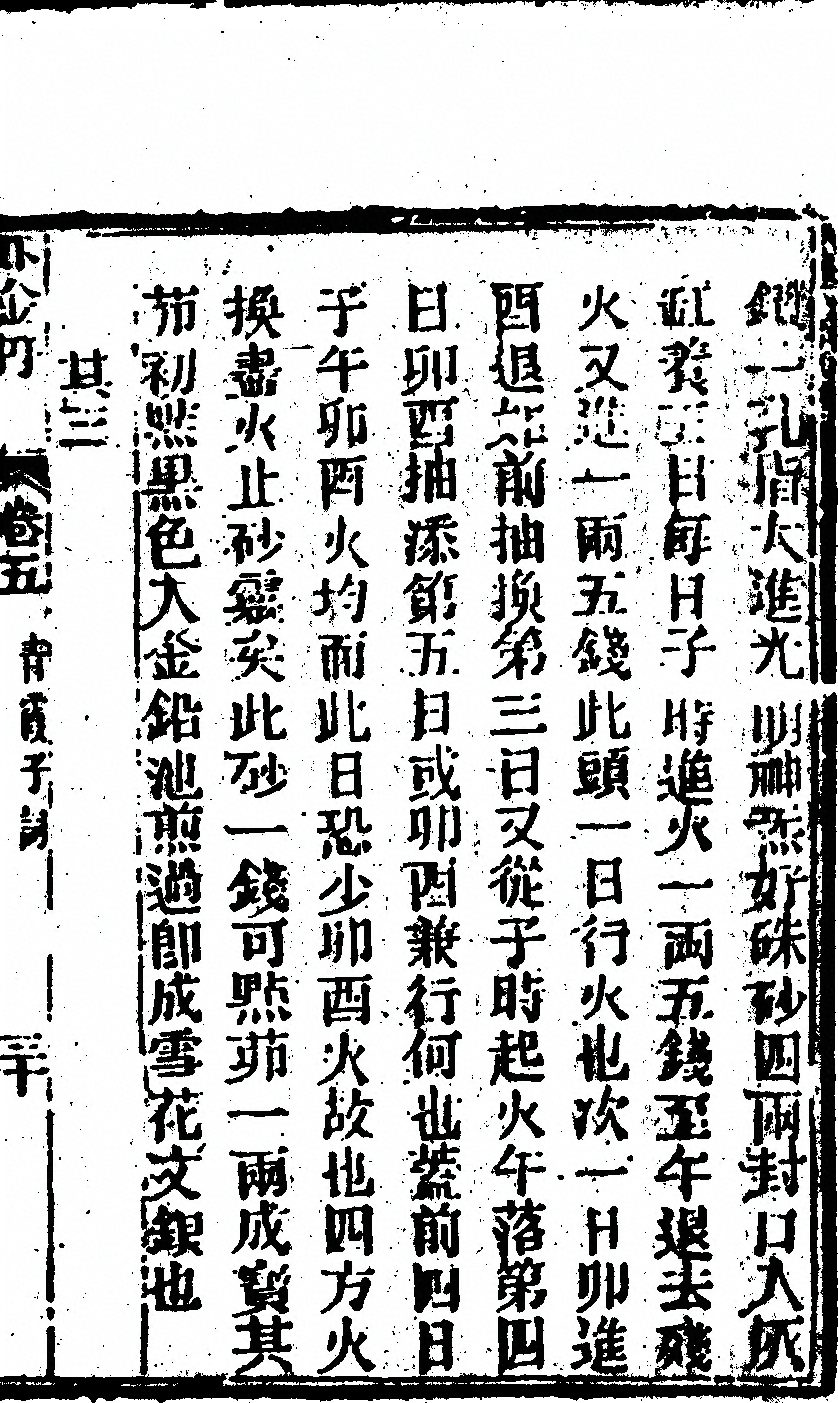 鑽一孔眉大進光明神炁好硃砂四兩封口入灰
缸養五日每日子時進火一兩五錢至午退去殘
火又進一兩五錢此頭一日行火也次一日卯進
酉退如前抽換第三日又從子時起火午落第四
日卯酉抽添第五日或卯酉兼行何也蓋前四日
子午卯酉火均而此日恐少卯酉火故也四方火
換盡火止砂靈矣此砂一錢可㸃茆一兩成寳其
茆初㸃黒色入金鉛池煎過卽成雪花文銀也
其三
外金丹
卷五
青霞子詩
三十